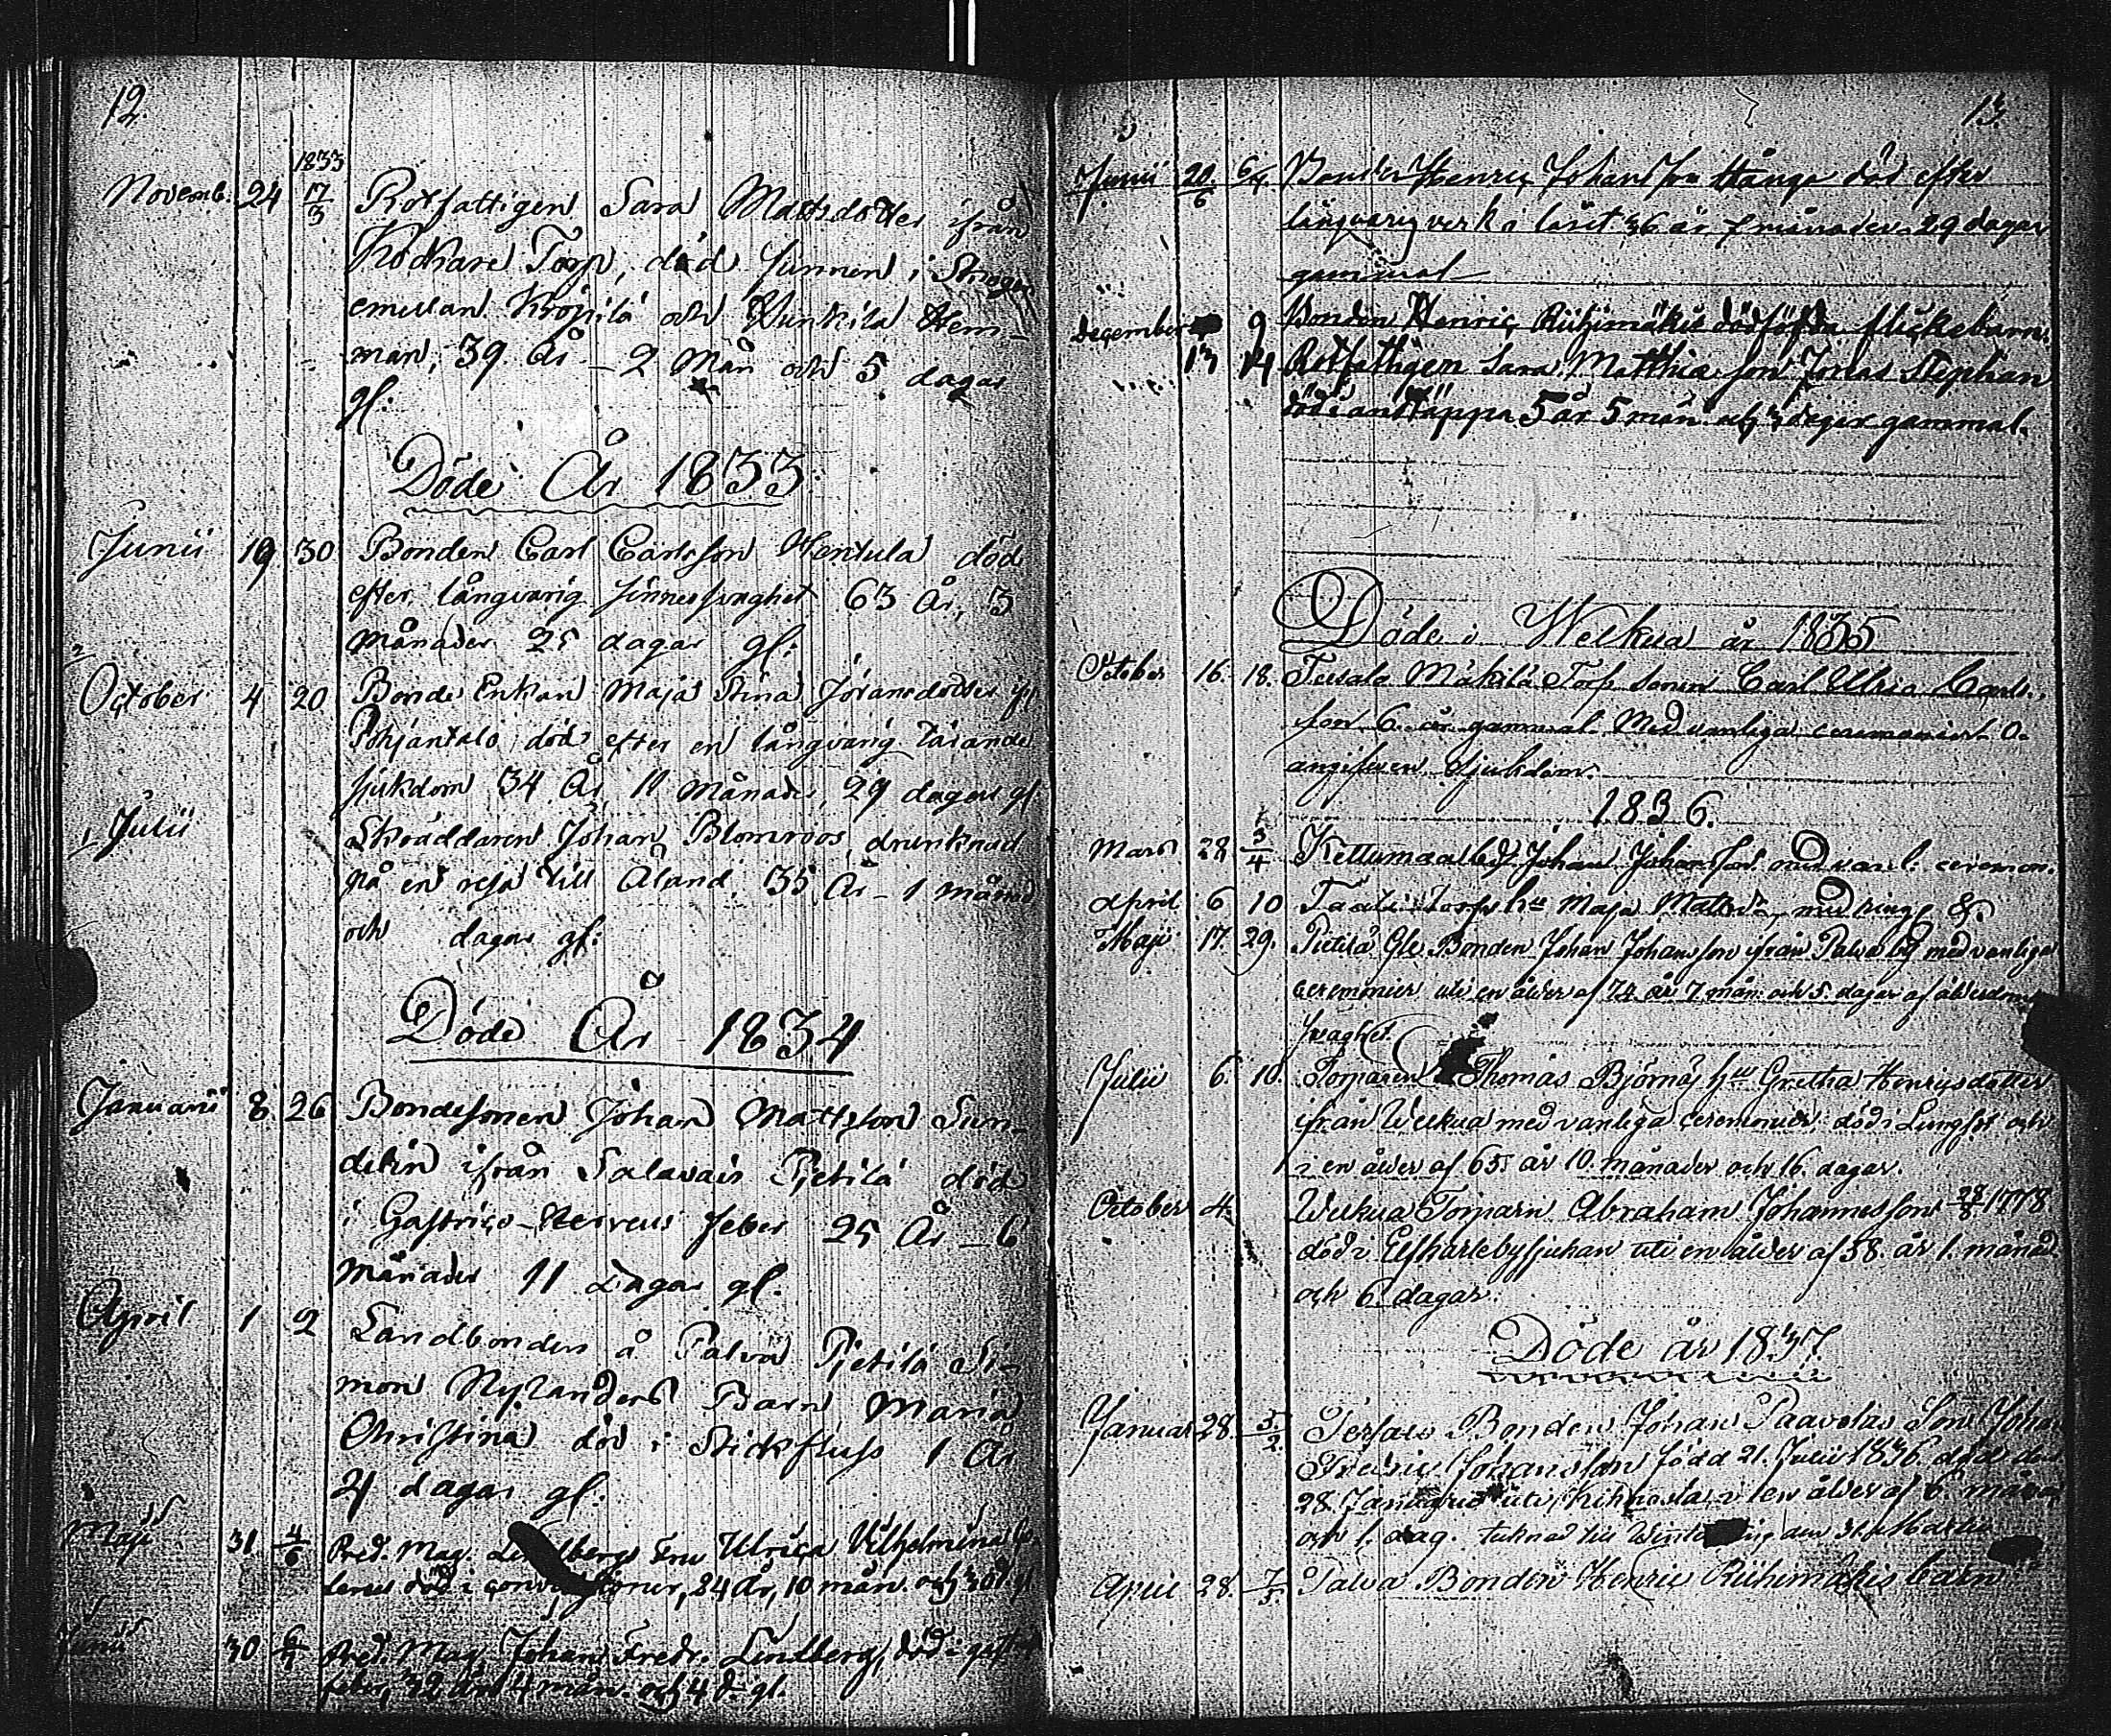 12.
1833
Novemb. 24 17/3 Rotfattigen Sara Mattsdotter ifrån
Kodkare Torp, död funnen i Skogen
emellan Kropilä och Kunkila Hem-
man, 39 År - 2 Mån och 5 dagar
gl:
Döde År 1833.
Junii 19 30 Bonden Carl Carlsson Hentula död
efter långvarig Sinnessvaghet 63 År, 3
månader 25 dagar gl:
October 4 20 Bonde Enkan Maja Stina Göransdotter
Pohjantalo, död efter en långvarig tärande
sjukdom 34 År 11 Månader, 29 dagar gl
Julii Skräddaren Johan Blomroos, drunknad
på en resa till Åland, 35 År - 1 månad
och dagar gl:
Döde År 1834
Januarii 8 26 Bondesonen Johan Mattsson Sun-
delin ifrån Salavais Pjetilä död
i Gastrico-Nerveus feber 25 År - 6
Månader 11 Dagar gl.
April 1 2 Landbonden å Palva Pjetilä Si-
mon Nylanders Barn Maria
Christina död i Stickfluss 1 År
4 dagar gl:
Maji 31 4/6 Pred. Mag. Lindbergs Fru Ulrica Vilhelmina
död i convulsioner, 24 År, 10 mån. och 30 d gl
Junii 30 6/7 Pred. Mag. Johan Fredr. Lindberg, död i gast
feber, 32 år 4 mån. och 4 d. gl.
13.
Junii 20/6 6/4 Bonden Henric Johansson Hånga död efter
långvarig verk i låret 36 år 7 månader 29 dagar
gammal
December 9 Bonden Henric Riihimäkis dödfödda flickebarn.
13 14 Rotfattigen Sara Matthiæ son Jonas Stephan
död i andtäppa 5 år 5 mån. och 3 dagar gammal.
Döde i Welkua år 1835
October 16. 18. Teisala Mäkilä Torp sonen Carl Ulric Carls-
son 6 år gammal. Med vanliga ceremonier. O-
angifven Sjukdom.
1836.
Mars 28 3/4 Kettumaa Johan Johansson med vanl. ceremon.
April 6 10 Taati Torp hu Maja Mattsdr med ringg &.
Maji 17. 29. Pietilä Gle Bonden Johan Johansson ifrån Palva by med vanliga
ceremonier uti en ålder af 74 år 7. mån och 5. dagar af ålderdoms
svaghet.
Julii 6. 10. Torparen Thomas Björnäs hu Gretha Henricsdotter
ifrån Welkua med vanliga ceremonier. död i Lungsot och
i en ålder af 65 år 10. månader och 16. dagar.
October 4. Welkua Torparn Abraham Johannesson 28/8 1778
död i Elfkarlebysjukan uti en ålder af 58. år 1. månad
och 6. dagar.
Döde år 1837
Januar 28. 5/2. Tersalo Bonden Johan Paavolas Son Johan
Fredric Johansson född 21. Julii 1836. död den
28. Januarii uti kikhosta i en ålder af 6. månad
och 1. dag. den 31. Martii
April 28. 7/5. Palva Bonden Henric Riihimäkis barn